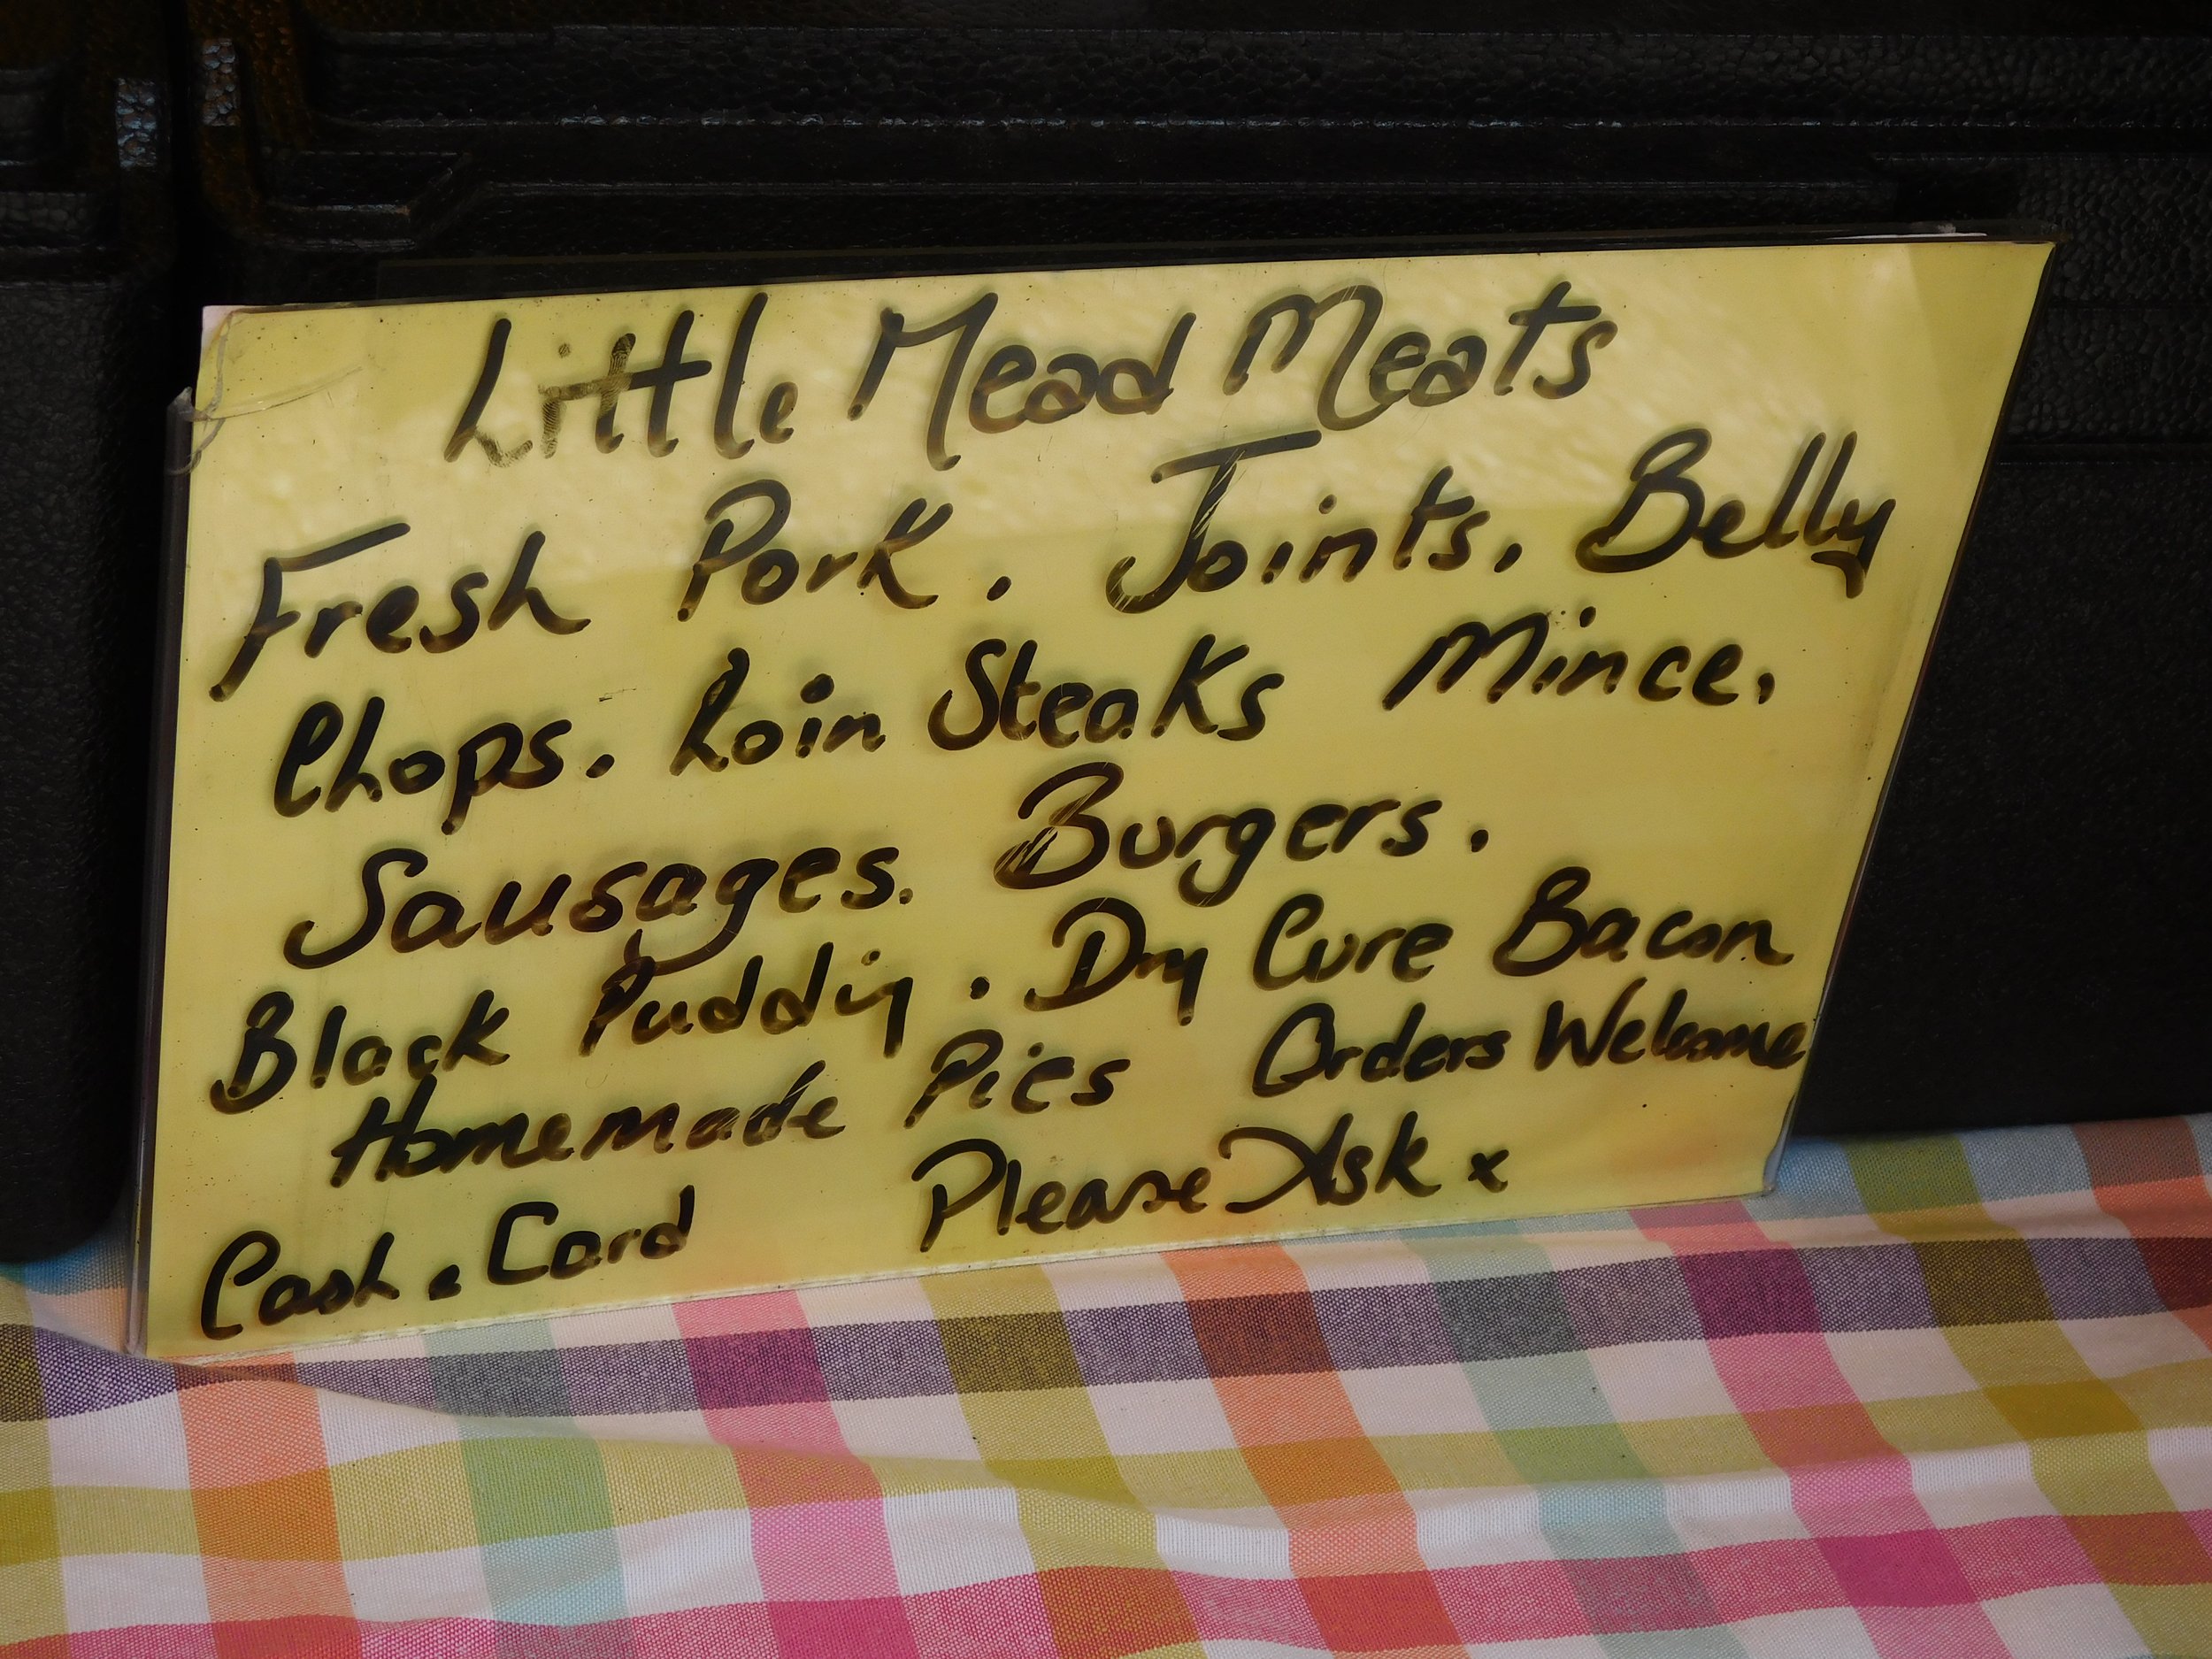 Little Mead Meats
Fresh Pork. Joints, Belly
Chops. Loin Steaks Mince,
Sausages. Burgers.
Black Puddig. Dry Cure Bacon
Homemade Pies Orders Welcome
Cash & Card Please Ask x